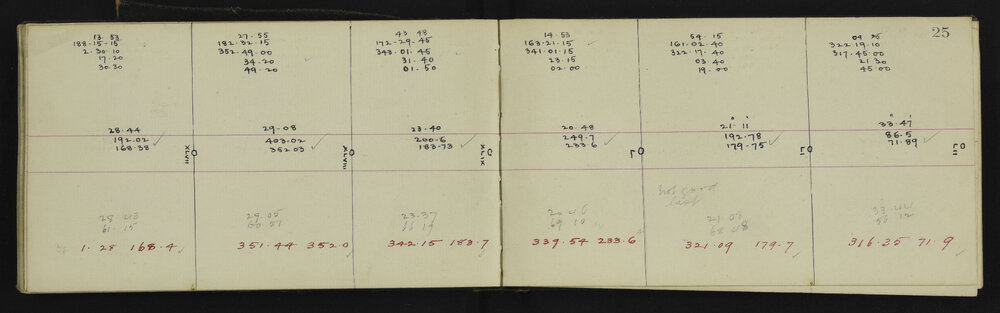 25
13.53
188-15-15
2.30.10
17.20
30.30
28.44
192.02
168.38
XLVII
28 43
61.15
1.28 168.4
27.55
182.32.15
352.49.00
34.20
49.20
29-08
403.02
352.03
XLVIII
29.05
60.51
351.44 352.0
43 48
172-29.45
343.01.45
31.40
01.50
23.40
200.6
183-73
XLIX
23.37
66 19
342.15 183.7
14.53
163.21.15
341.01.15
23.15
02.00
20.48
249.7
233.6
L
20 46
69 10
339.54 233.6
54.15
161.02.40
322.17.40
03.40
19.00
21° 11'
192.78
179-75
LI
not good
last
21.09
68 48
321.09 179.7
322.19.10
317.45.00
21 30
45.00
33° 47'
86.5
71.89
LII
316.35 71.9